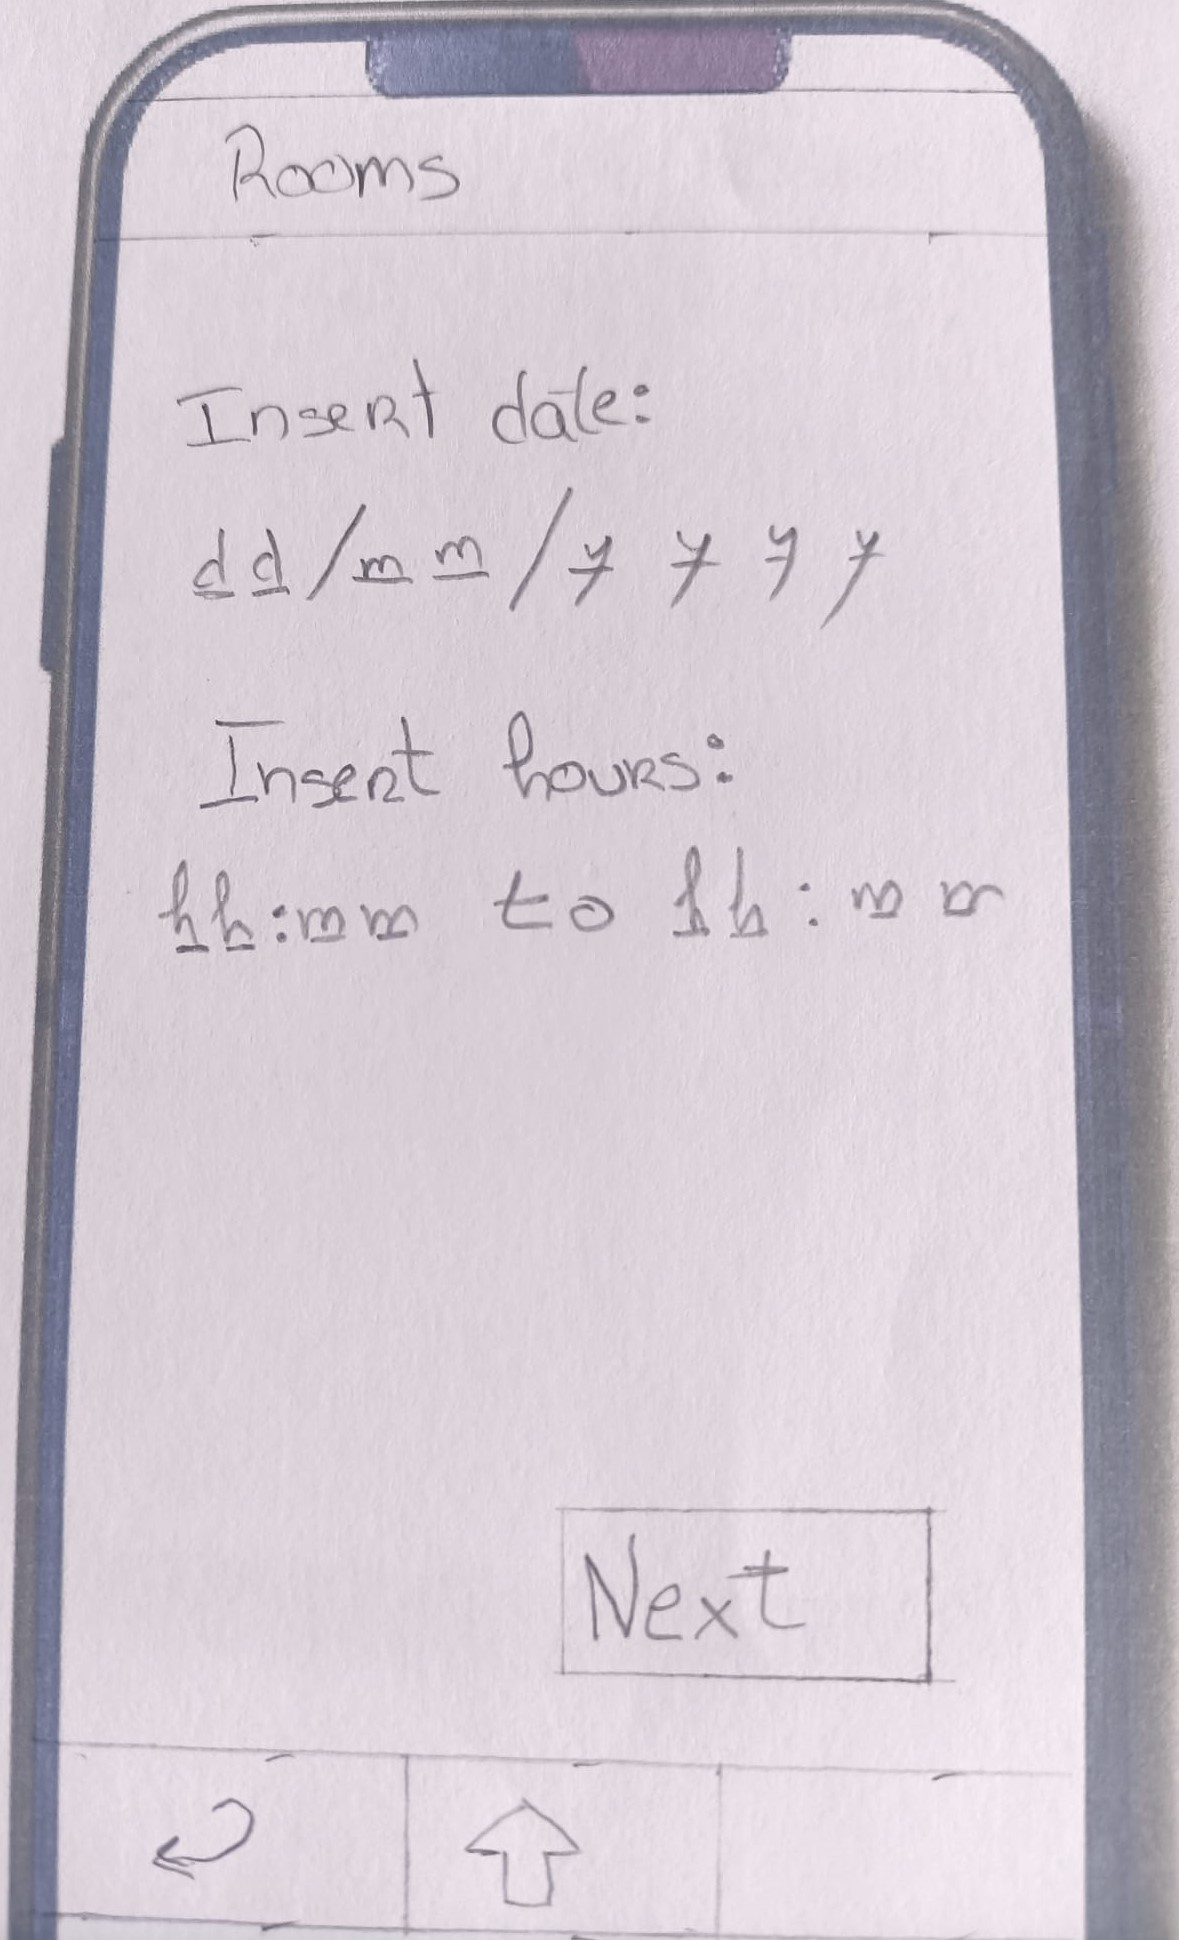 Rooms
Insert date:
dd/mm/yyyy
Insert hours:
hh:mm to hh:mm
Next